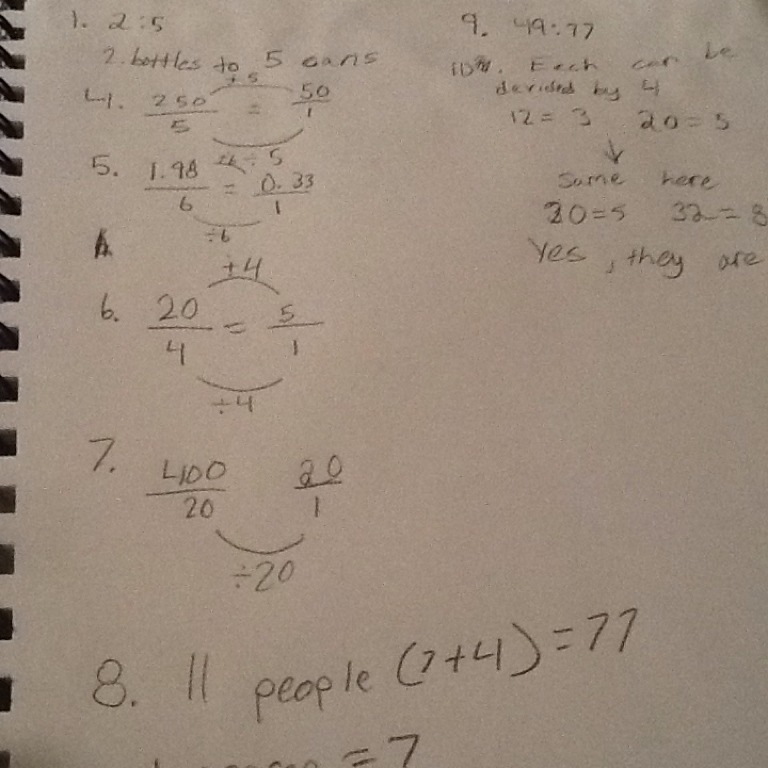 1. 2:5
2. bottles to 5 cans
÷5
4. 250/5 = 50/1
÷ 5
5. 1.98/6 = 0.33/1
÷6
÷4
6. 20/4 = 5/1
÷4
7. 400/20 20/1
÷20
8. 11 people (7+4)=77
=7
9. 49:77
10. Each can be
devided by 4
12= 3 20=5
↓
Same here
20=5 32=8
Yes, they are